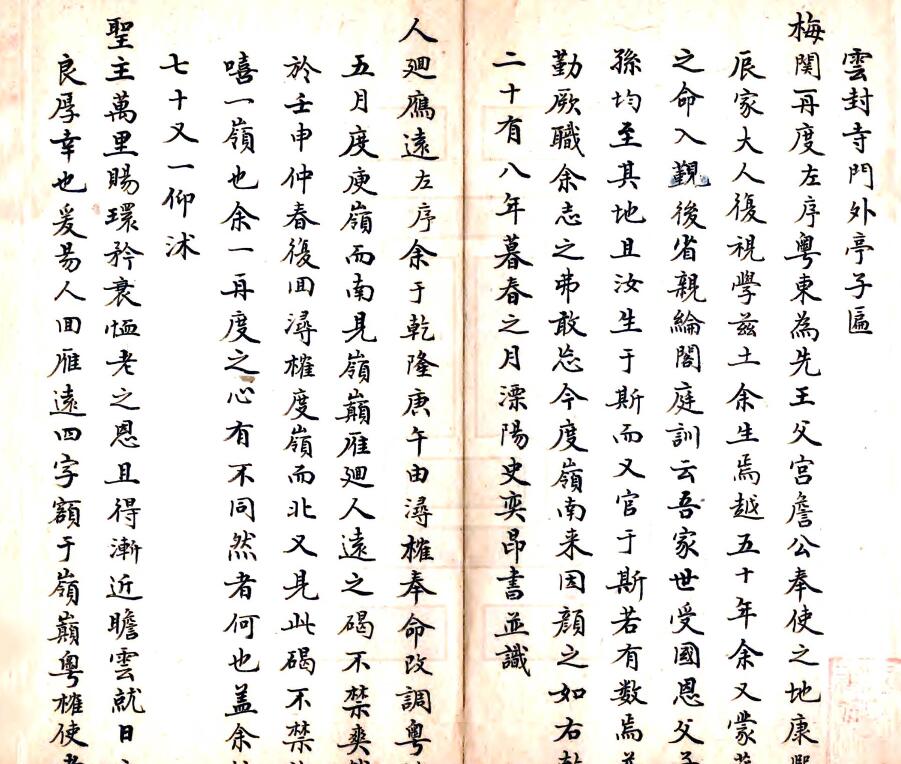 雲封寺門外亭子匾
梅関再度左序粤東為先王父宫詹公奉使之地康熙
辰家大人復視學兹土余生焉越五十年余又蒙
之命入覲後省親綸閣庭訓云吾家世受國恩父子
孫均至其地且汝生于斯而又官于斯若有数焉
勤厥職余志之弗敢忘今度嶺南来因顔之如右乾
二十有八年暮春之月溧陽史奕昂書並識
人廻鴈遠左序余于乾隆庚午由潯榷奉命改調粤
五月度庾嶺而南見嶺巔雁廻人遠之碣不禁爽
於壬申仲春復囬潯榷度嶺而北又見此碣不禁
嘻一嶺也余一再度之心有不同然者何也盖余
七十又一仰沭
聖主萬里賜環矜衰恤老之恩且得漸近瞻雲就日
良厚幸也爰昜人囬雁遠四字額于嶺巔粤榷使者